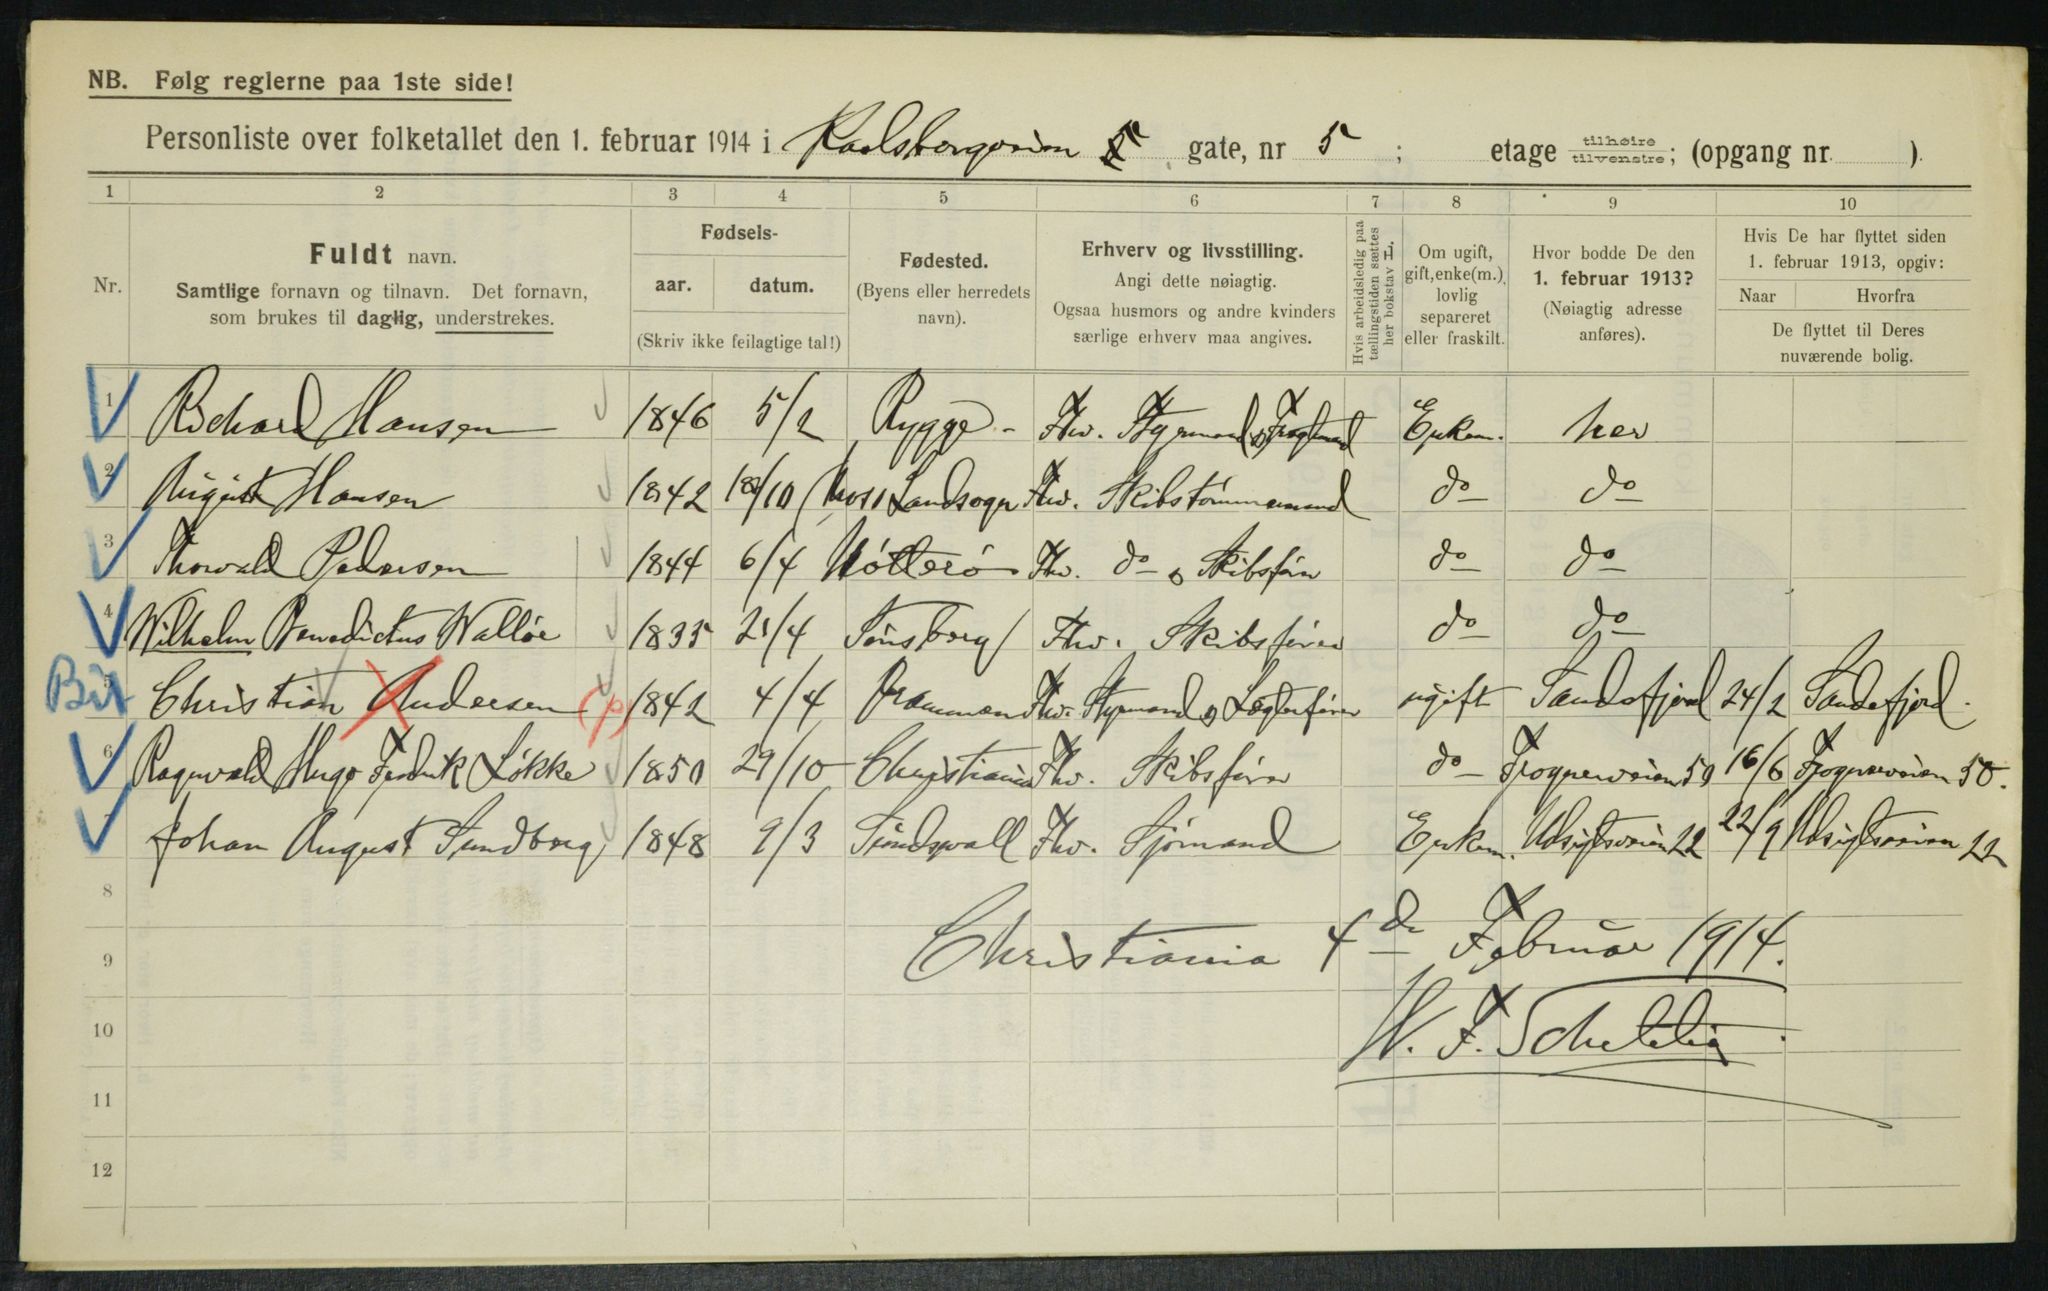 NB. Følg reglerne paa 1ste side!
Personliste over folketallet den 1. februar 1914 i Karlsborgveien gate, nr 5; etage tilhøire tilvenstre; (opgang nr. ).
1 2 3 4 5 6 7 8 9 10
Nr.
Fuldt navn.
Samtlige fornavn og tilnavn. Det fornavn,
som brukes til daglig, understrekes.
Fødsels-
aar. datum.
(Skriv ikke feilagtige tal!)
Fødested.
(Byens eller herredets
navn).
Erhverv og livsstilling.
Angi dette nøiagtig.
Ogsaa husmors og andre kvinders
særlige erhverv maa angives.
Hvis arbeidsledig paa
tællingstiden sættes
her bokstav L.
Om ugift,
gift, enke(m.),
lovlig
separeret
eller fraskilt.
Hvor bodde De den
1. februar 1913?
(Nøiagtig adresse
anføres).
Hvis De har flyttet siden
1. februar 1913, opgiv:
Naar Hvorfra
De flyttet til Deres
nuværende bolig.
1 Richard Hansen 1846 5/2 Rygge - Fhv. Styrmand Enkem. her
2 August Hansen 1842 18/10 Moss Landsogn Fhv. Skibstømmermand do do
3 Thorvald Pedersen 1844 6/4 Nøtterø Fhv. do & Skibsfører do do
4 Wilhelm Benedictus Walløe 1835 21/4 Tønsberg Fhv. Skibsfører do do
5 Christian Andersen (p) 1842 4/4 Drammen Fhv. Styrmand & Lægterfører ugift Sandefjord 24/2 Sandefjord.
6 Ragnvald Hugo Fredrik Løkke 1850 29/10 Christiania Fhv. Skibsfører do Frognerveien 50 16/6 Frognerveien 50.
7 Johan August Sundborg 1848 9/3 Sundsvall Fhv. Sjømand Enkem. Utsigtsveien 22 22/9 Utsigtsveien 22
8
Christiania 4de Februar 1914.
9
10
11
12